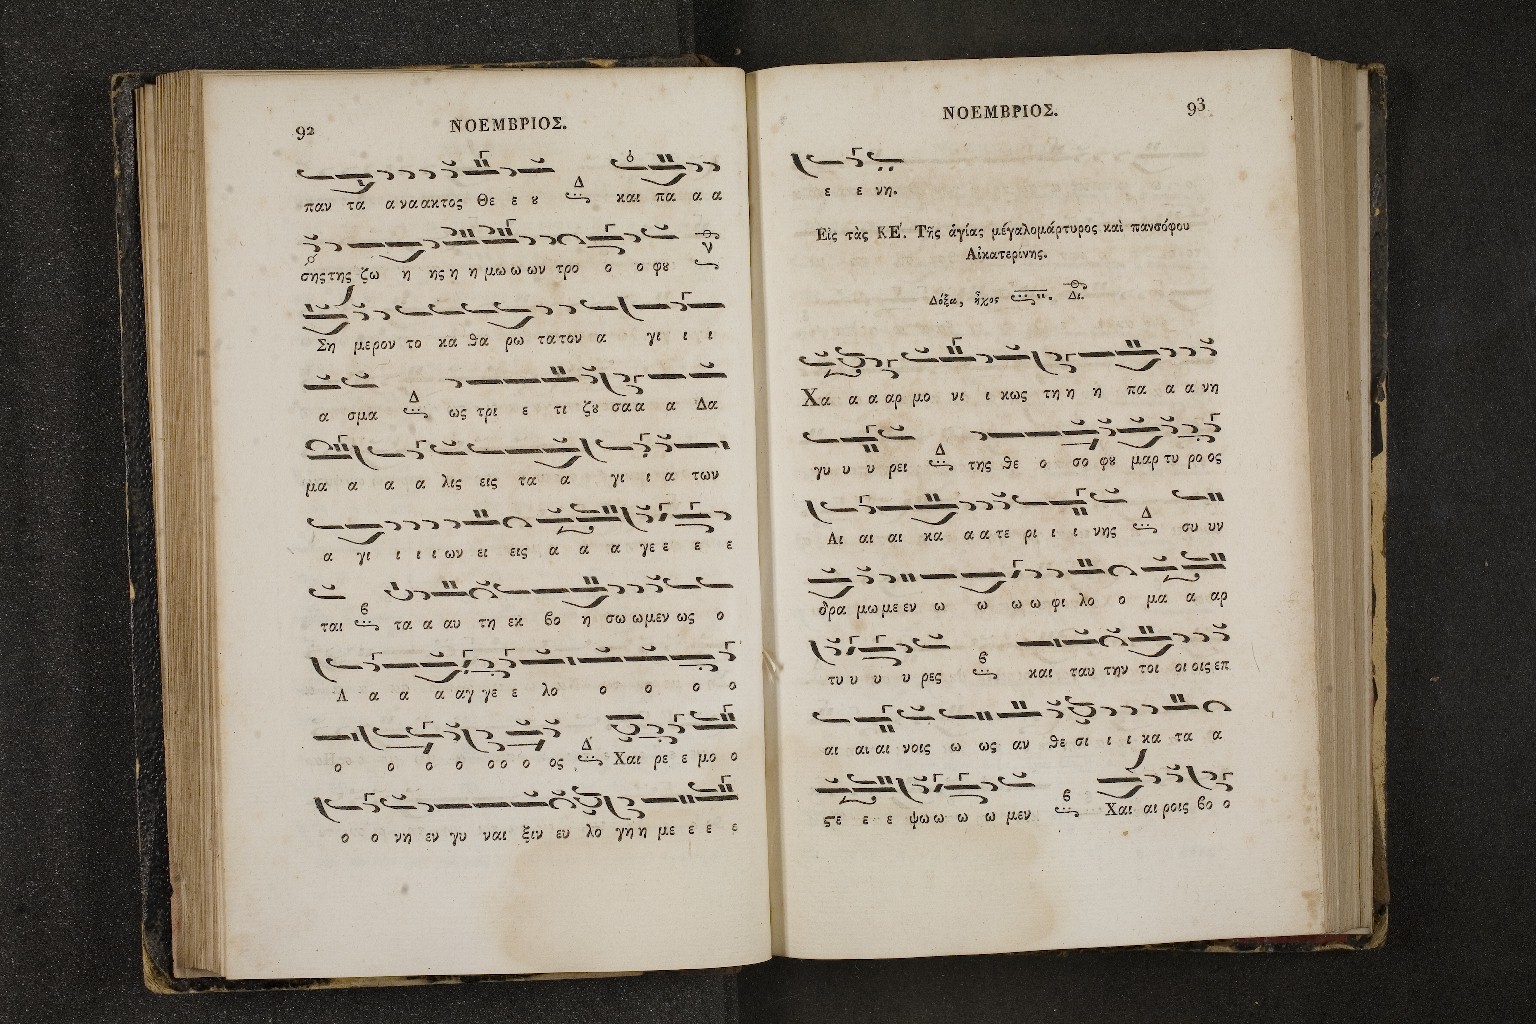 92
ΝΟΕΜΒΡΙΟΣ.
παν τα α να ακτος Θε ε ȣ Δ και πα α α
σης της ζω η ης η η μω ω ων τρο ο ο φȣ
Ση μερον το κα θα ρω τα τον α γι ι ι
α σμα Δ ως τρι ε τι ζȣ σα α α Δα
μα α α α λις εις τα α γι ι α των
α γι ι ι ι ων ει εις α α α γε ε ε ε
ται ϐ τα α αυ τη εκ ϐο η σω ω μεν ως ο
Α α α α αγ γε ε λο ο ο ο ο
ο ο ο ο ο ο ο ος Δ Χαι ρε ε μο ο
ο ο νη εν γυ ναι ξιν ευ λο γη η με ε ε ε
ΝΟΕΜΒΡΙΟΣ.
93
ε ε νη.
Εἰς τὰς ΚΕ΄. Τῆς ἁγίας μέγαλομάρτυρος καὶ πανσόφου
Αἰκατερινης.
Δόξα, ἦχος Δι.
Χα α α αρ μο νι ι κως τη η η πα α α νη
γυ υ υ ρει Δ της θε ο σο φȣ μαρ τυ ρο ος
Αι αι αι κα α α τε ρι ι ι νης Δ συ υν
δρα μω με εν ω ω ω ω φι λο ο μα α αρ
τυ υ υ υ ρες ϐ και ταυ την τοι οι οις επ
αι αι αι νοις ω ως αν θε σι ι ι κα τα α
ϛε ε ε ψω ω ω ω μεν ϐ Χαι αι ροις ϐο ο